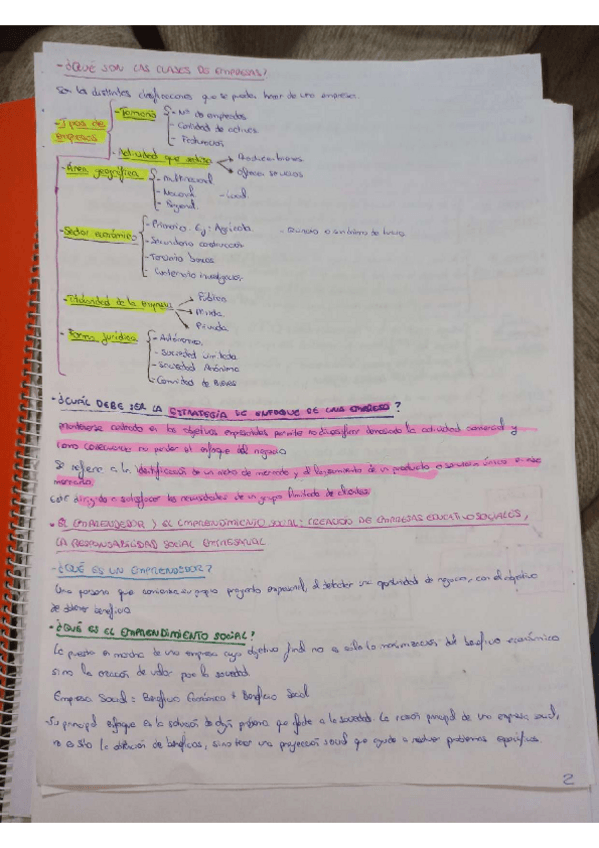 - ¿QUÉ SON LAS CLASES DE EMPRESAS?
Son las distintas clasificaciones que se pueden hacer de una empresa.
- Tipos de empresas
- Tamaño
- Nº de empleados
- Cantidad de activos
- Facturación
- Actividad que realiza
Producen bienes
Ofrecen servicios
- Área geográfica
- Multinacional
- Nacional
- Local
- Regional
- Sector económico
- Primario. Ej: Agrícola
- Secundario construcción
- Terciario bancos
- Cuaternario investigación
- con o sin ánimo de lucro
- Titularidad de la empresa
Pública
Mixta
Privada
- Forma jurídica
- Autónomo
- Sociedad limitada
- Sociedad Anónima
- Comunidad de Bienes
- ¿CUÁL DEBE SER LA ESTRATEGIA DE ENFOQUE DE UNA EMPRESA?
Mantenerse centrado en los objetivos empresariales permite no diversificar demasiado la actividad comercial y
como consecuencia no perder el enfoque del negocio
Se refiere a la identificación de un nicho de mercado y el lanzamiento de un producto o servicio único en ese
mercado
Está dirigido a satisfacer las necesidades de un grupo limitado de clientes
EL EMPRENDEDOR Y EL EMPRENDIMIENTO SOCIAL: CREACIÓN DE EMPRESAS EDUCATIVO SOCIALES,
LA RESPONSABILIDAD SOCIAL EMPRESARIAL
- ¿QUÉ ES UN EMPRENDEDOR?
Una persona que comienza su propio proyecto empresarial, al detectar una oportunidad de negocio, con el objetivo
de obtener beneficio
- ¿QUÉ ES EL EMPRENDIMIENTO SOCIAL?
La puesta en marcha de una empresa cuyo objetivo final no es sólo la maximización del beneficio económico
sino la creación de valor para la sociedad
Empresa Social: Beneficio Económico + Beneficio Social
- Su principal enfoque es la solución de algún problema que afecte a la sociedad. La razón principal de una empresa social,
no es sólo la obtención de beneficios, sino tener una proyección social que ayude a resolver problemas específicos.
2